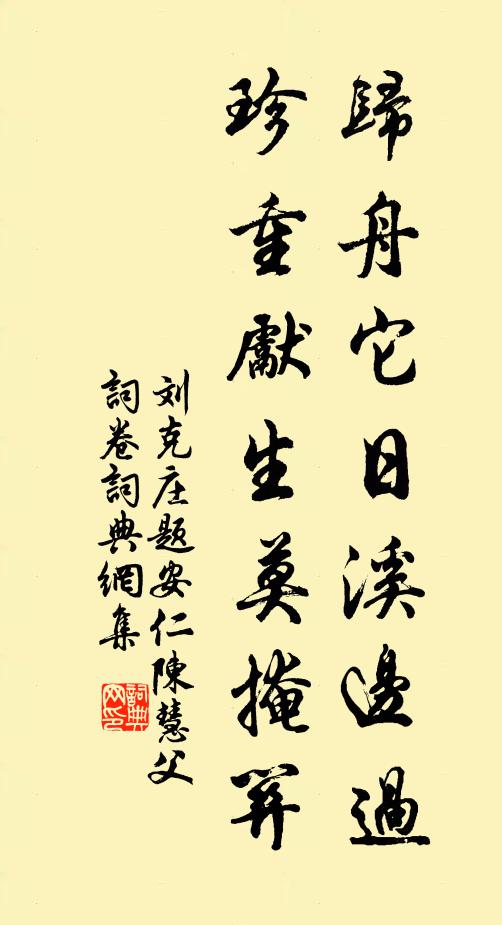 歸舟它日溪邊過
珍重獻生莫掩關
刘克庄題安仁陳慧父
詞卷詞典網集
詞典网印